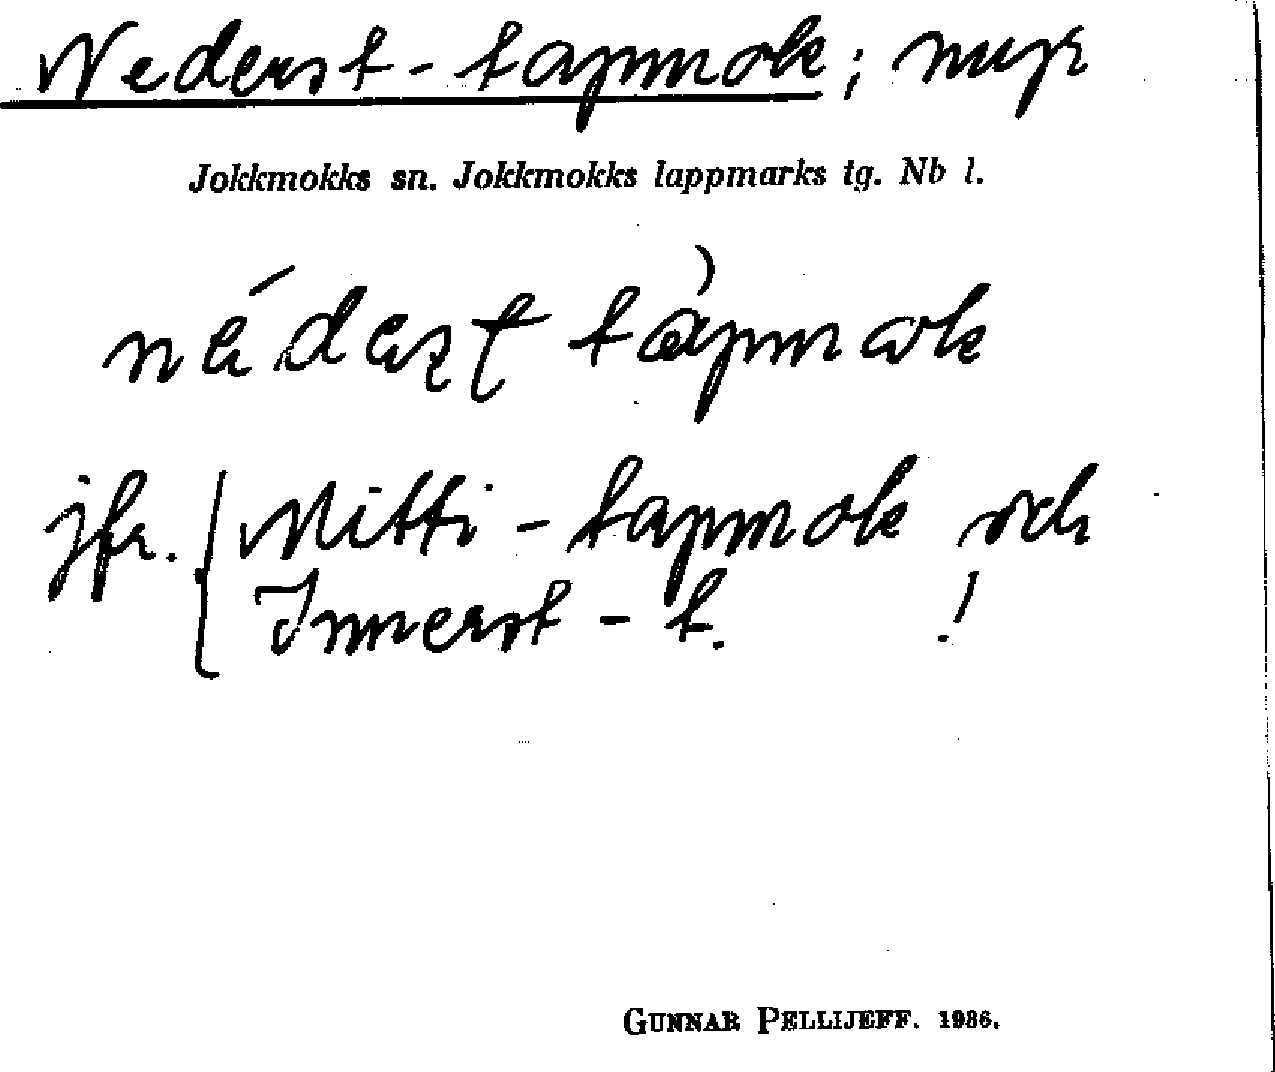 Nederst-tapmok; myr
Jokkmokks sn. Jokkmokks lappmarks tg. Nb l.
tápmok
jfr. { Mitti-tapmok och
Innerst-t. !
GUNNAR PELLIJEFF. 1986.